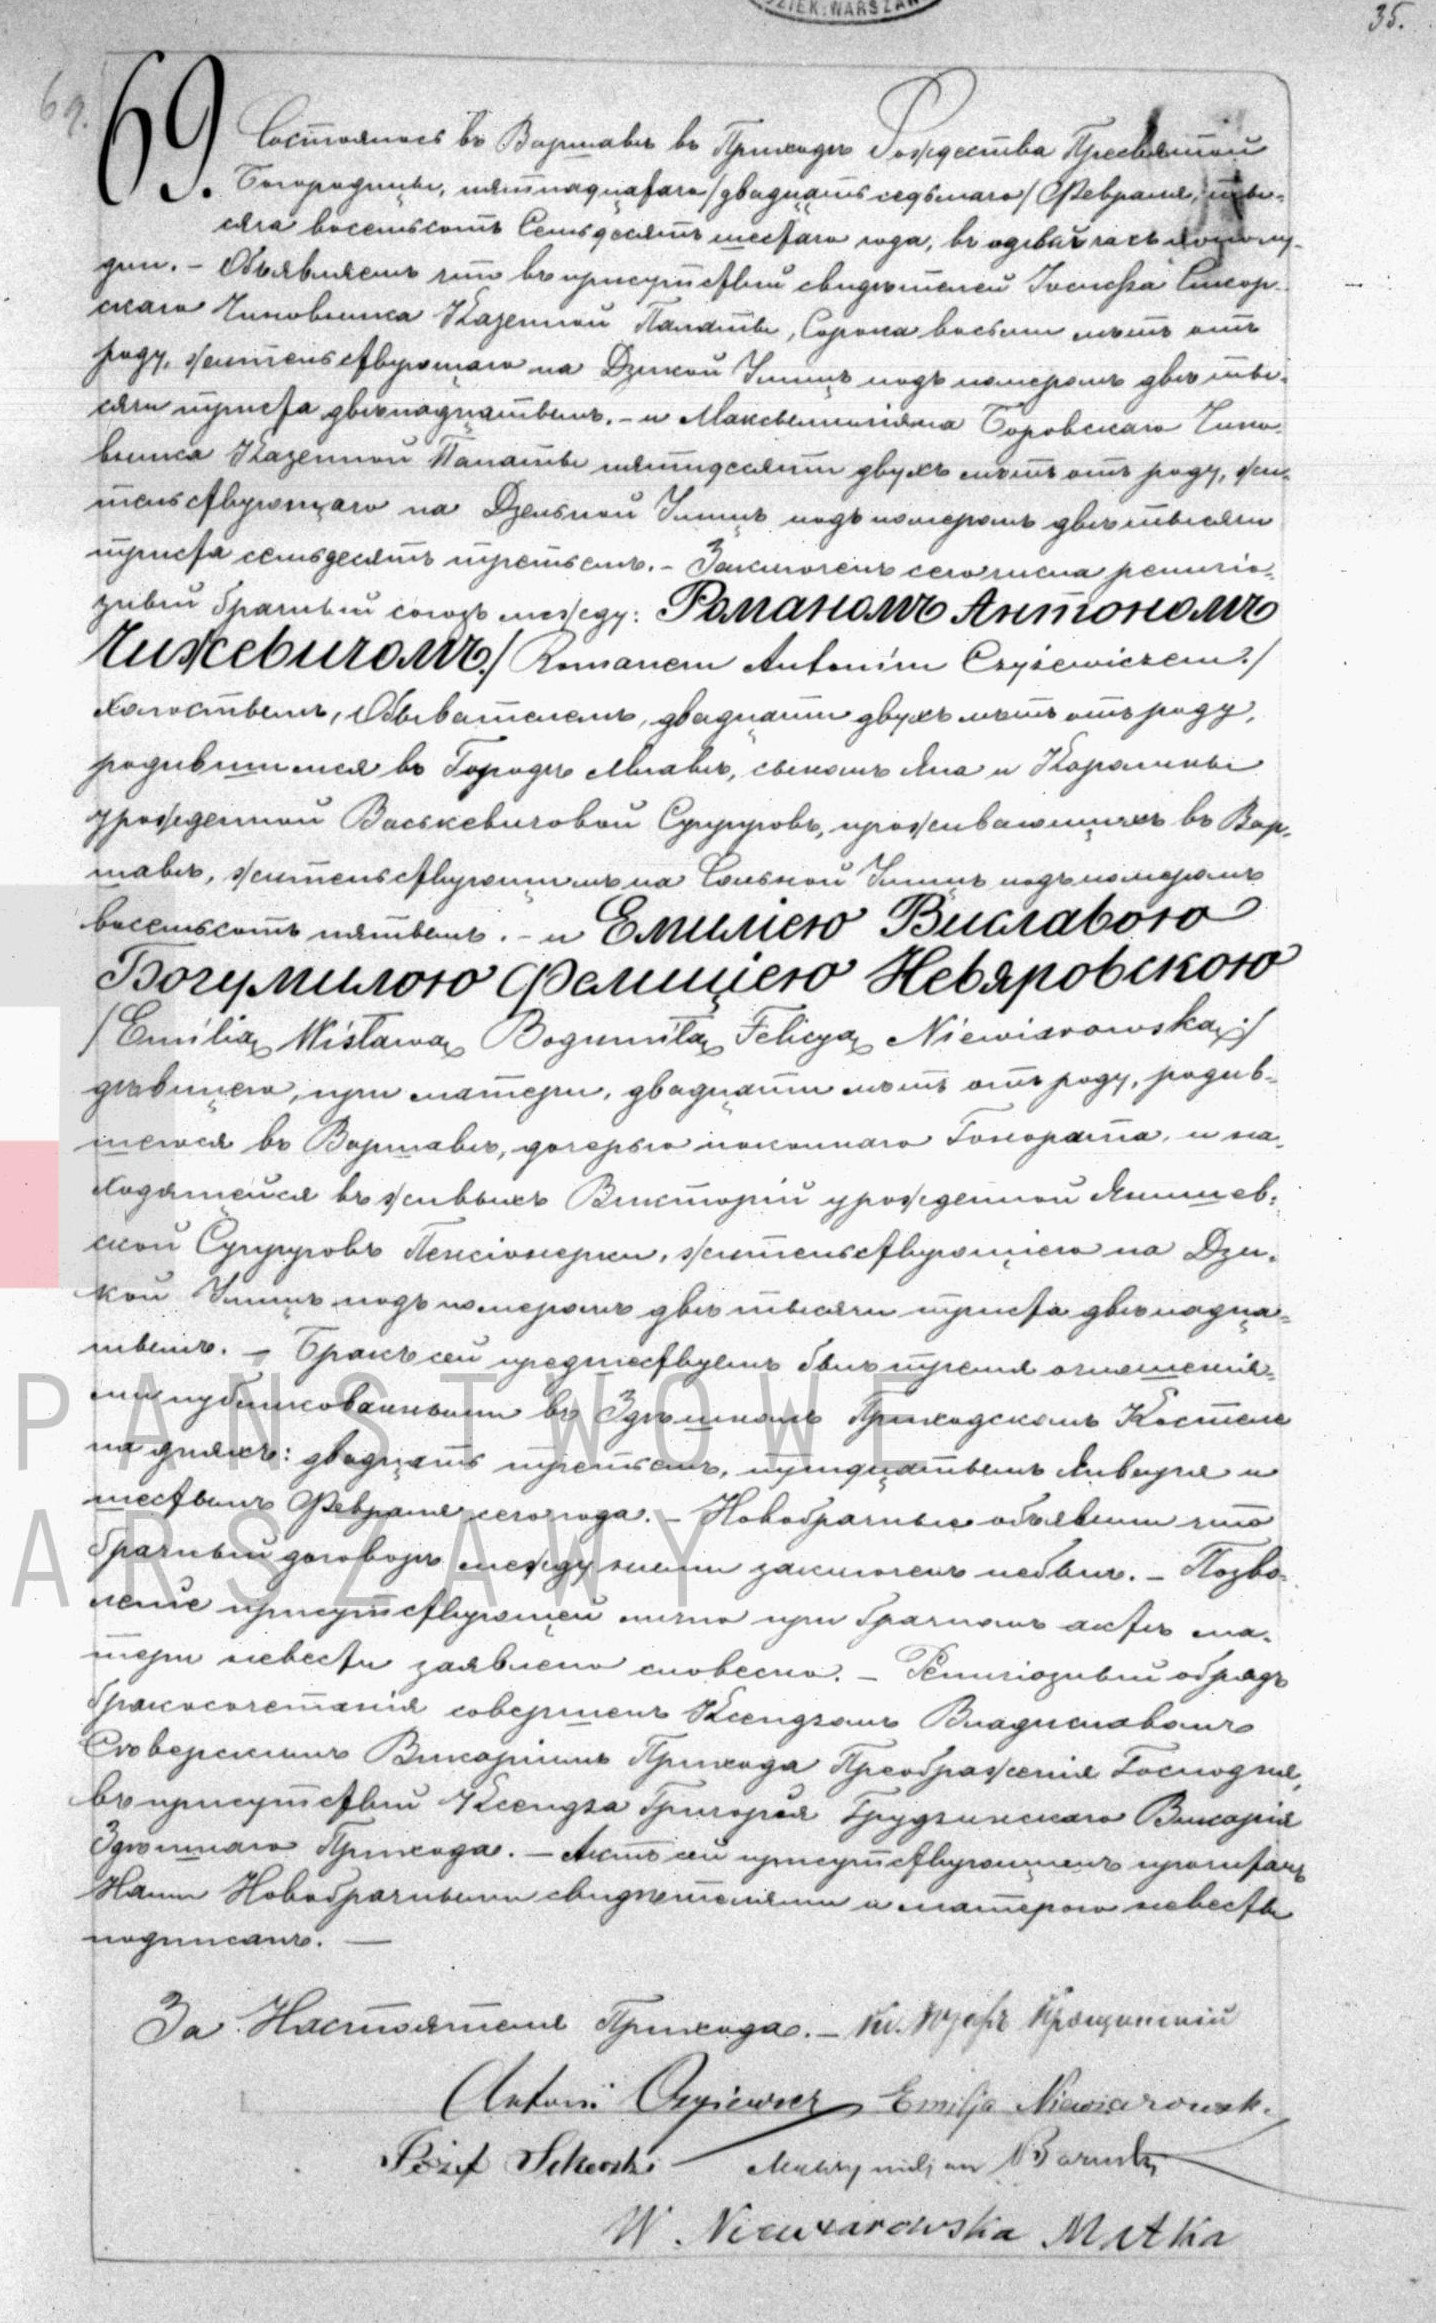 DZIEK. WARSZAW
35.
69.
69. Состоялось въ Варшавѣ въ Приходѣ Рождества Пресвятой
Богородицы, пятнадцатаго /двадцать седьмаго/ Февраля, тыся-
сяча восемьсотъ Семьдесятъ шестаго года, въ часъ пополу-
дни. – Объявляемъ что въ присутствіи свидѣтелей Іосифа Сикор-
скаго Чиновника Казенной Палаты, Сорока восьми лѣтъ отъ
роду, жительствующаго на Дзикой Улицѣ подъ номеромъ двѣ ты-
сячи триста двѣнадцатымъ. – и Максымиліяна Боровскаго Чино-
вника Казенной Палаты пятидесяти двухъ лѣтъ отъ роду, жи-
тельствующаго на Дзельной Улицѣ подъ номеромъ двѣ тысячи
триста семьдесятъ третьемъ. – Заключенъ сего числа религіо-
зный брачный союзъ между: Романомъ Антономъ
Чижевичомъ /Romanem Antonim Czyżewiczem./
холостымъ, Обывателемъ, двадцати двухъ лѣтъ отъ роду,
родившимся въ Городѣ Млавѣ, сыномъ Яна и Каролины
урожденной Васькевичовой Супруговъ, проживающихъ въ Вар-
шавѣ, жительствующимъ на Сольной Улицѣ подъ номеромъ
восемьсотъ пятымъ. – и Емиліею Виславою
Богумилою Фелиціею Невяровскою
/Emilią Wisławą Bogumiłą Felicyą Niewiarowską./
дѣвицею, при матери, двадцати лѣтъ отъ роду, родив-
шеюся въ Варшавѣ, дочерью покойнаго Гонората, и на-
ходящейся въ живыхъ Викторіи урожденной Янишев-
ской Супруговъ Пенсіонерки, жительствующею на Дзи-
кой Улицѣ подъ номеромъ двѣ тысячи триста двѣнадца-
тымъ. – Бракъ сей предшествуемъ былъ тремя оглашенія-
ми публикованными въ Здѣшномъ Приходскомъ Костеле
на дняхъ: двадцать третьемъ, тридцатымъ Января и
шестымъ Февраля сего года. – Новобрачные объявили что
брачный договоръ между ними заключенъ небылъ. – Позво-
леніе присутствующей лично при брачномъ актѣ ма-
тери невесты заявлено словесно. – Религіозный обрядъ
бракосочетанія совершенъ Ксендзомъ Владиславомъ
Сѣверскимъ Викаріимъ Прихода Преображенія Господня,
въ присутствіи Ксендза Григорія Грудзинскаго Викарія
Здѣшнаго Прихода. – Актъ сей присутствующимъ прочитанъ
Нами Новобрачными свидѣтелями и матерью невесты
подписанъ. –
За Настоятеля Прихода. –
Antoni Czyżewicz Emilja Niewiarowsk.
Józef Sikorski Maksymiljan Borowski
W. Niewiarowska Matka
PAŃSTWOWE
ARSZAWY